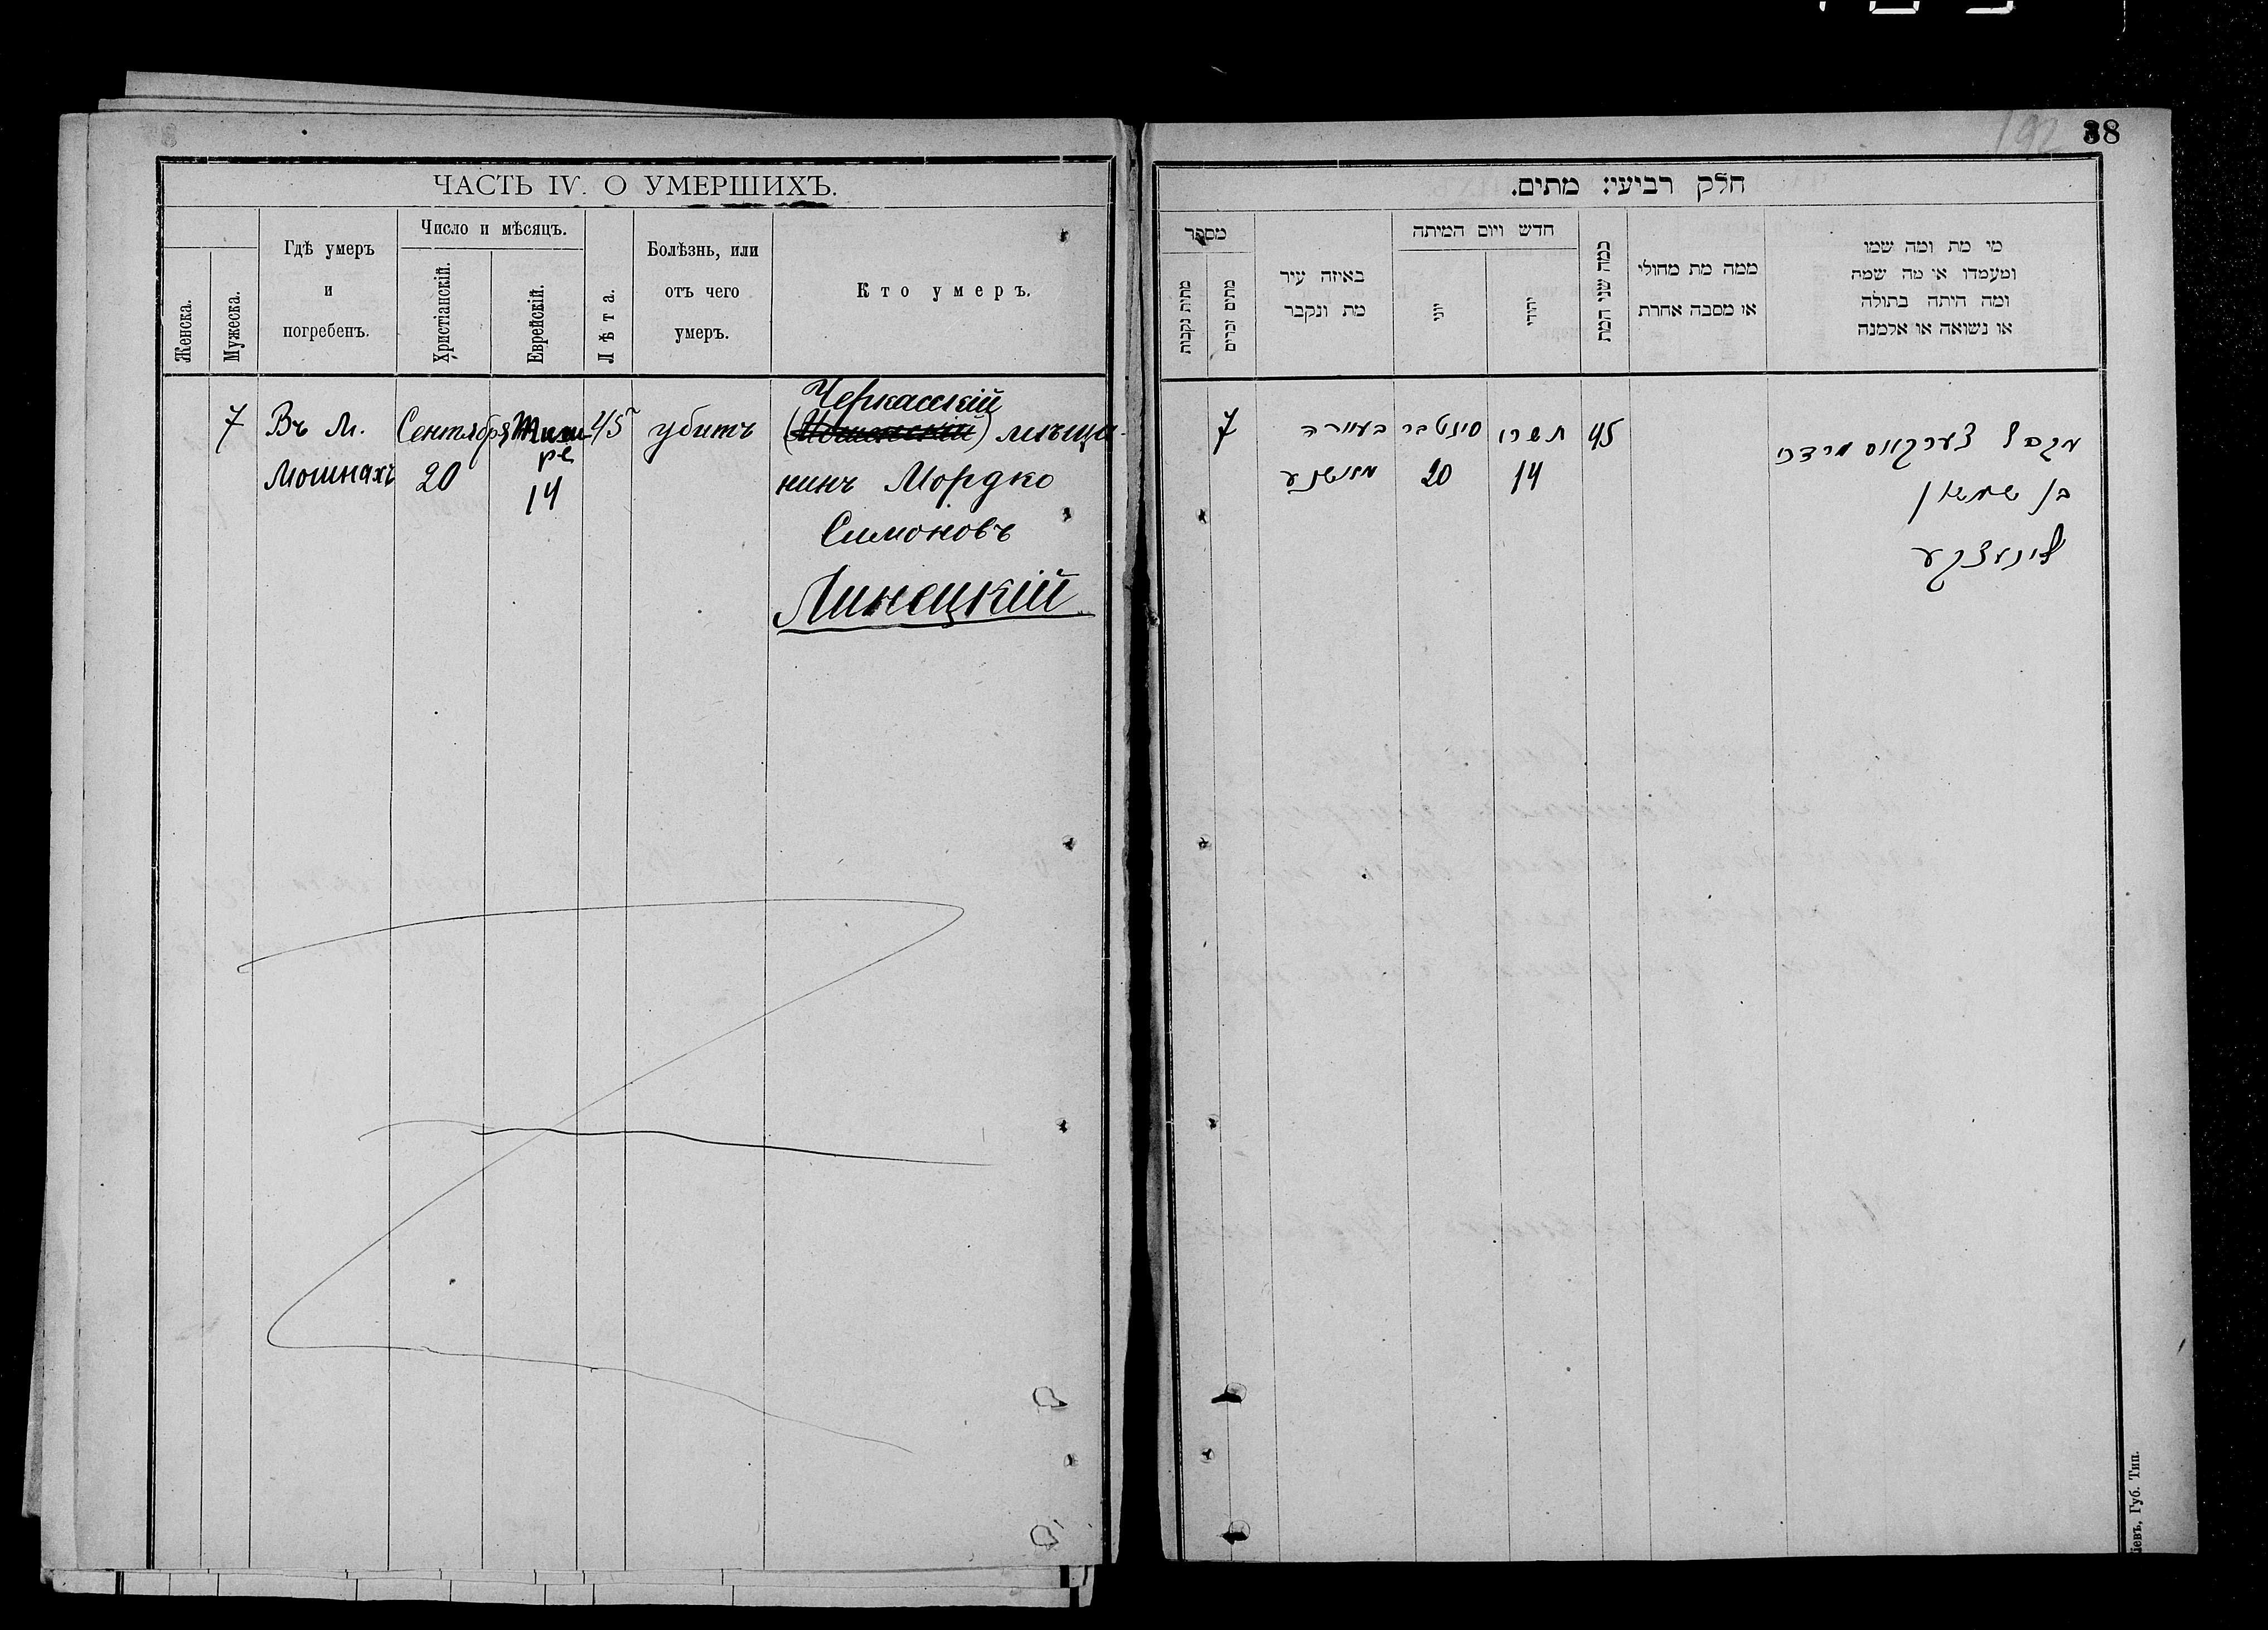 ЧАСТЬ IV. О УМЕРШИХЪ.
Женска.
Мужеска.
Гдѣ умеръ
и
погребенъ.
Число и мѣсяцъ.
Христіанскій.
Еврейскій.
Лѣта.
Болѣзнь, или
отъ чего
умеръ.
Кто умеръ.
7
Въ м.
Мошнахъ
Сентября
20
Тиш-
ре
14
45
убитъ
Черкасскій
(Мошенскій) мѣща-
нинъ Мордко
Симоновъ
Линецкій
192
38
חלק רביעי: מתים.
מספר
מתות נקבות
מתים זכרים
באיזה עיר
מת ונקבר
חדש ויום המיתה
יוני
יהודי
כמה שני המת
ממה מת מחולי
או מסבה אחרת
מי מת ומה שמו
ומעמדו או מה שמה
ומה היתה בתולה
או נשואה או אלמנה
7
בעיירה
מאשנע
סינטבר
20
תשרי
14
45
מרדכי
בן שמעון
לינעצקע
Кіевъ, Губ. Тип.